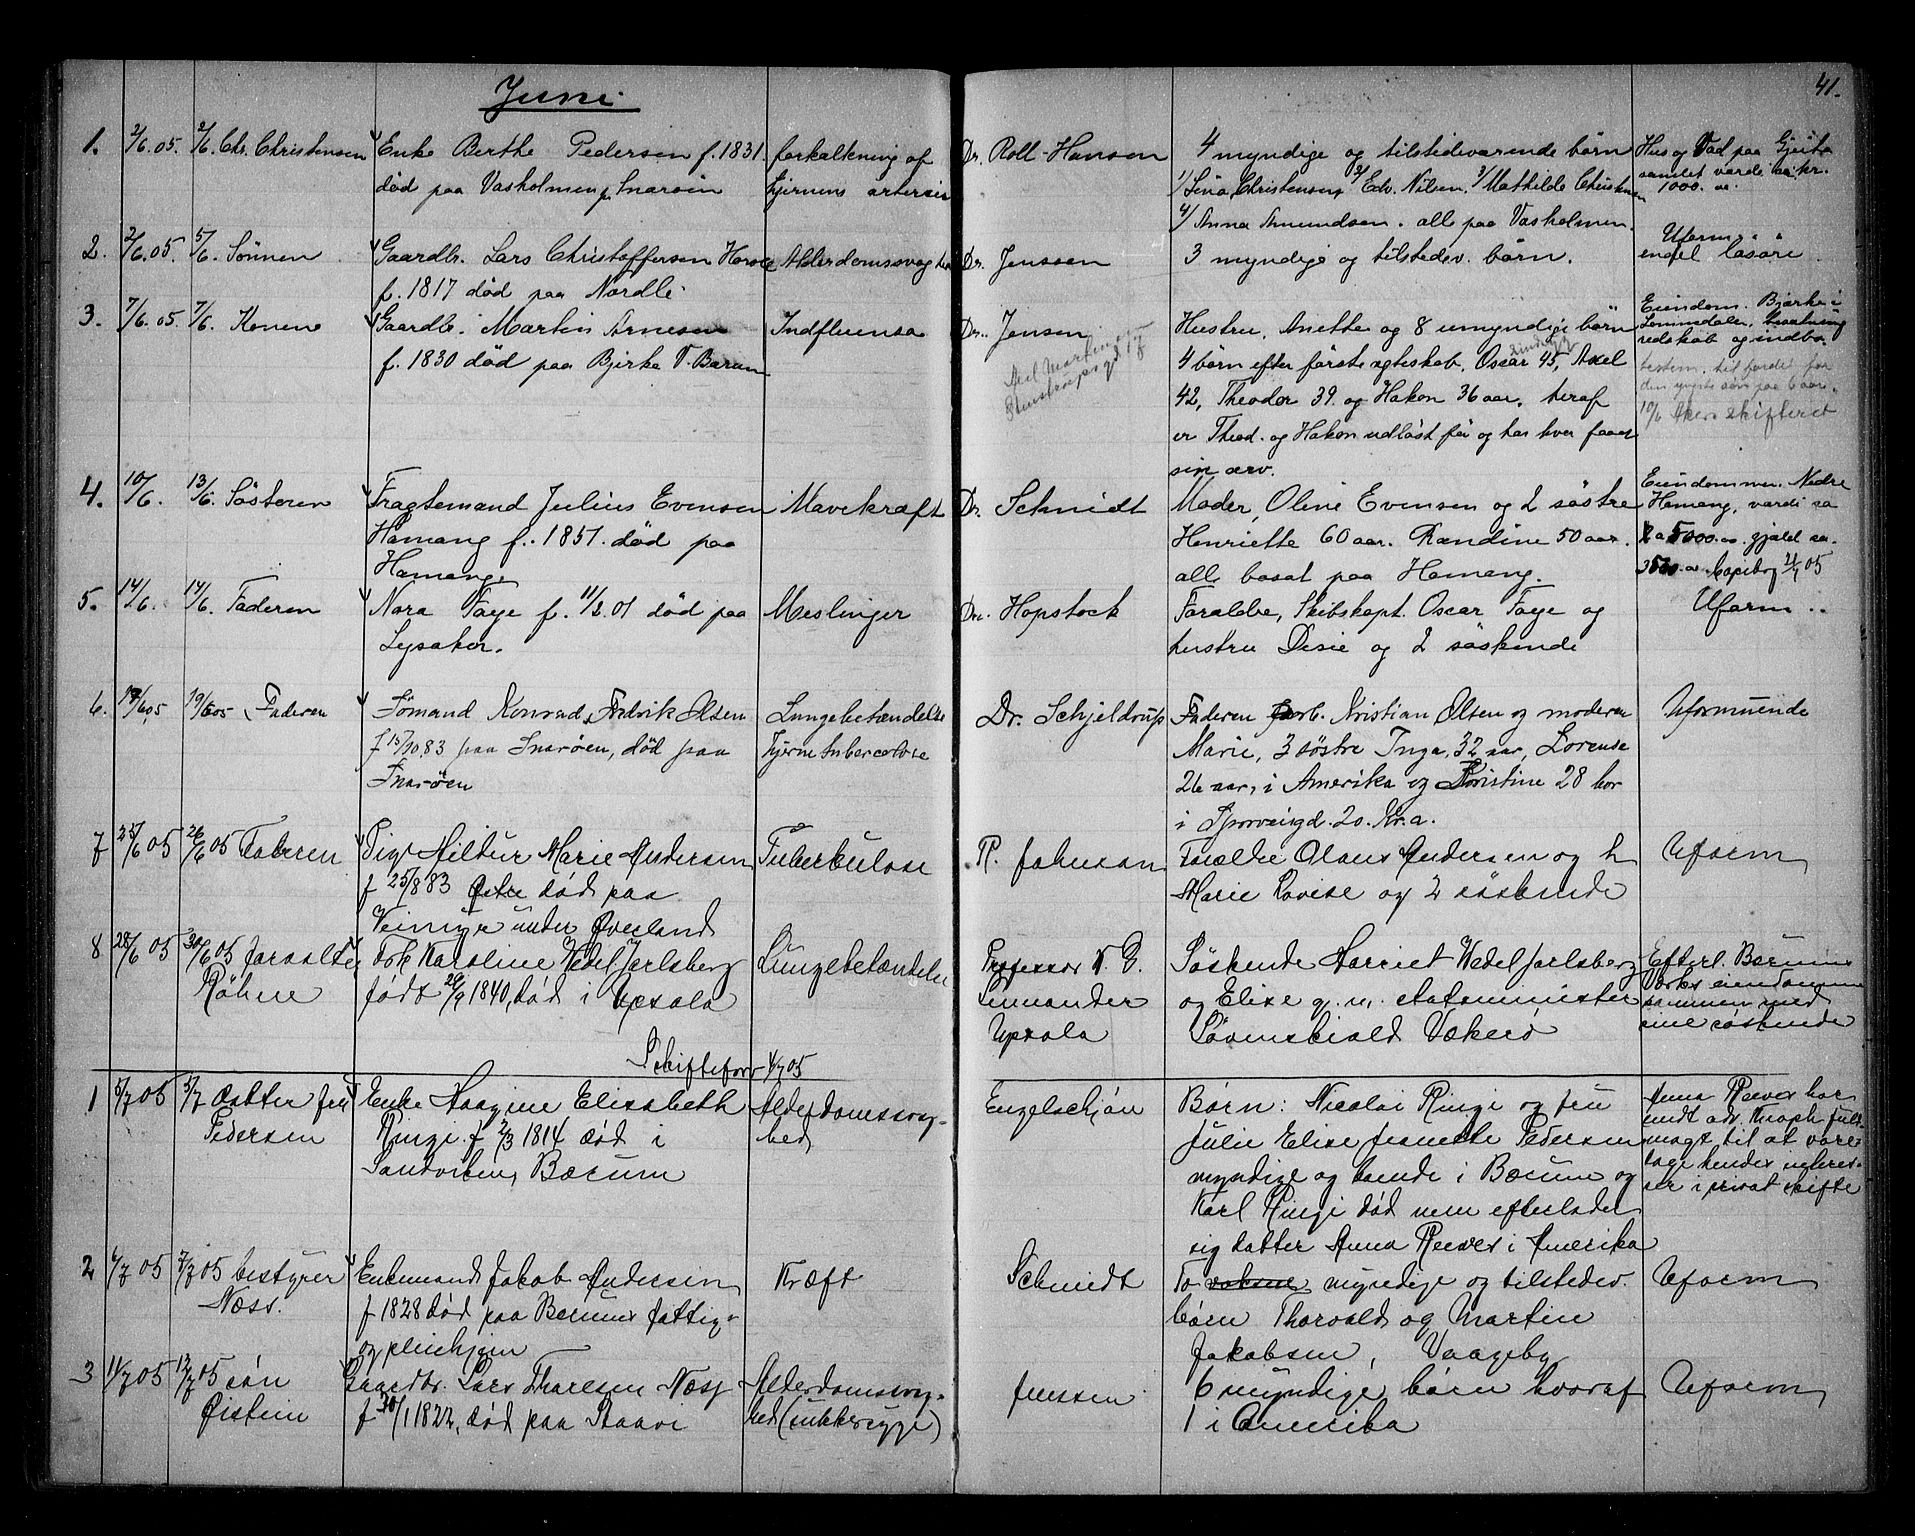 Juni
41.
1. 2/6.05. 2/6. Chr. Christensen Enke Berthe Pedersen f. 1831. forkalkning af Dr. Roll-Hansen 4 myndige og tilstedeværende børn Hus og Vad paa
død paa Vasholmen p. Snarøen hjernens arterier 1/ Lina Christensen, 2/ Edv. Nilsen. 3/ Mathilde Christensen samlet værdi ca kr.
4/ Anna Amundsen. all paa Vasholmen. 1000. oo.
2. 2/6.05. 5/6. Sønnen Gaardbr. Lars Christoffersen Alderdomssvaghed Dr. Jenssen 3 myndige og tilstedev. børn. Uform.
f. 1817 død paa Nordli løsøre
3. 7/6.05. 7/6. Konene Gaardbr. Martin Arnesen Indfluensa Dr. Jensen Hustru, Anette og 8 umyndige børn Eiendom. Bjerke i
f. 1830 død paa Bjerke V. Bærum 4 børn efter første ægteskab, Oscar 45, Axel Lommedalen,
42, Theodor 39. og Hakon 36 aar. heraf redskab og indbo.
er Theod. og Hakon udløst før og har hver faaet
sin arv. 10/6 Akers skifteret
4. 10/6. 13/6. Søsteren Fragtemand Julius Evensen Mavekræft Dr. Schmidt Moder, Oline Evensen og 2 søstre Eiendommen. Nedre
Hamang f. 1851. død paa Henriette 60 aar. Randine 50 aar. Hamang, værdi ca
Hamang. alle bosat paa Hamang. 5000.oo. gjæld ca.
3500.oo
5. 14/6. 14/6. Faderen Nora Faye f. 11/3.01 død paa Meslinger Dr. Hopstock Forældre, Skibskapt. Oscar Faye og Uform..
Lysaker. hustru Desie og 2 søskende
6. 17/6 05 19/6 05 Faderen Sømand Konrad Fredrik Olsen Lungebetændelse Dr. Schjeldrup Faderen Kristian Olsen og moderen Uformuende
f 15/10 83 paa Snarøen, død paa hjerne tuberculose Marie, 3 søstre Inga, 32 aar, Lorense
Snarøen 26 aar, i Amerika og Kristine 28 bor
i Sporveisgd. 20. Kr.a.
7 25/6 05 26/6 05 Faderen Pige Hildur Marie Andersen Tuberkulose R. Johnsen Forældre Olaus Andersen og h Uform
f 25/8 83 død paa Marie Lovise og 2 søskende
Veimyr under Øverland
8 28/6 05 30/6 05 Frk Karoline Wedel Jarlsberg Lungebetændelse Professor K. G. Søskende Harriet Wedel Jarlsberg Efterl. Bærums
Röhne født 20/9 1840, død i Upsala Lennander og Elise g. m. statsminister Værks eiendomme
Upsala Løvenskiold Vækerø sammen med
sine søskende
Skifteforr 1/7 05
1 5/7 05 5/7 datter fru Enke Haagine Elisabeth Alderdomssvag- Engelschjøn Børn: Nicolai Ringi og fru Anna Reever har
Pedersen Ringi. f 2/3 1814 død i hed Julie Elise Jeanette Pedersen sendt adv. Knoph full-
Sandviken, Bærum myndige og boende i Bærum og magt til at vare-
Karl Ringi død men efterlader tage hendes interes-
sig datter Anna Reever i Amerika ser i privat skifte
2 6/7 05 7/7 05 bestyrer Enkemand Jakob Andersen Kræft Schmidt To voksne myndige og tilstedev. Uform
Næss. f 1828 død paa Bærums fattig- børn Thorvald og Martin
og pleiehjem Jakobsen, Vaageby
3 11/7 05 12/7 05 søn Gaardbr. Lars Thoresen Næss Alderdomssvag- Jenssen 6 myndige børn hvoraf Uform
Øistein f 30/1 1822, død paa Staavi hed (sukkersyge) 1 i Amerika